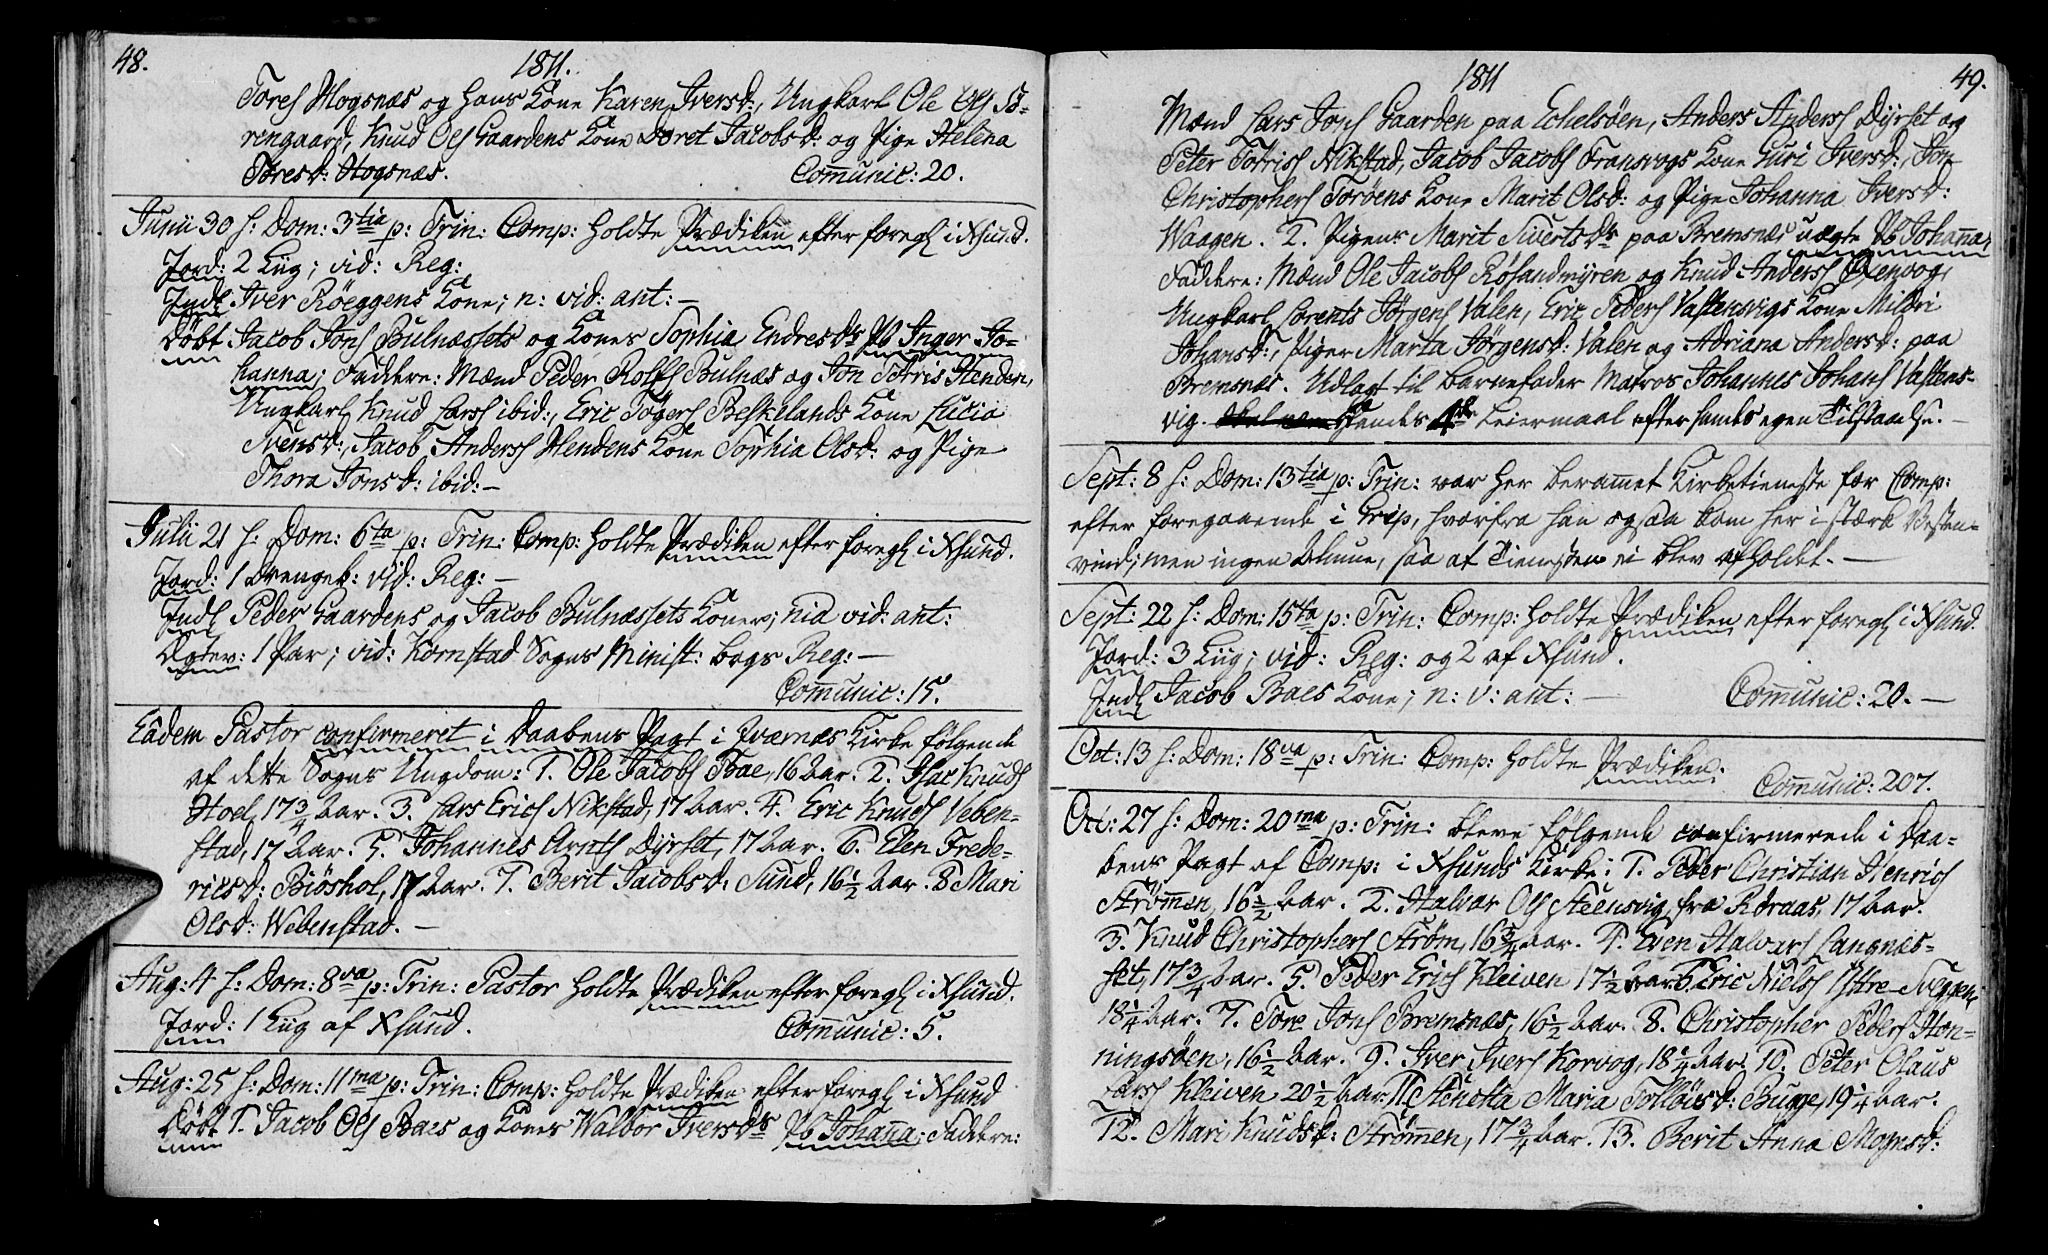 48.
1811.
Tores Hogsnæs og hans Kone Karen Iversd:, Ungkarl Ole Ols Bø-
rengaard, Knud Ols Gaardens Kone Doret Jacobsd: og Pige Helena
Toresd: Hogsnæs. Communic: 20.
Junii 30 h: Dom: 3tia p: Trin: Comp: holdte Prædiken efter foreg: i Xsund.
Jord: 2 Liig; vid: Reg:
Indl Iver Röeggens Kone; n: vid: ant: —
Döbt Jacob Jons Bulnæssets og Kones Sophia Endresdr Pb Inger Jo-
hanna; Faddere: Mænd Peder Rolfs Bulnæs og Jon Torris Henden,
Ungkarl Knud Lars ibid:, Eric Tögers Beskelands Kone Lucia
Svensd:, Jacob Anders Hendens Kone Sophia Olsd: og Pige
Thora Jonsd: ibid: —
Julii 21 h: Dom: 6ta p: Trin: Comp: holdte Prædiken efter foreg: i Xsund.
Jord: 1 Drengeb: vid: Reg: —
Indl Peder Gaardens og Jacob Bulnæssets Koner; nia vid: ant:
Egtev: 1 Par; vid: Kornstad Sogns Minist: Bogs Reg: —
Communic: 15.
Eâdem Pastor confirmeret i Daabens Pagt i Qværnes Kirke fölgende
af dette Sogns Ungdom: 1. Ole Jacobs Bae, 16 Aar. 2. Isac Knuds
Hoel, 17 3/4 Aar. 3. Lars Erics Nikstad, 17 Aar. 4. Eric Knuds Veben-
stad, 17 Aar. 5. Johannes Arnts Dyrset, 17 Aar. 6. Elen Frede-
ricsd: Biöshol, 17 Aar. 7. Berit Jacobsd: Sund, 16 1/2 Aar. 8 Mari
Olsd: Webenstad. —
Aug: 4 h: Dom: 8va p: Trin: Pastor holdte Prædiken efter foreg: i Xsund.
Jord: 1 Liig af Xsund. Communic: 5.
Aug: 25 h: Dom: 11ma p: Trin: Comp: holdte Prædiken efter foreg: i Xsund
Döbt 1. Jacob Ols Baes og Kones Walbor Iversdr Pb Johanna; Faddere:
1811
49.
Mænd Lars Jons Gaarden paa Echelsöen, Anders Anders Dyrset og
Peter Torris Nikstad, Jacob Jacobs Fransvogs Kone Guri Iversd:, Jon
Christophers Toröens Kone Marit Olsd: og Pige Johanna Iversd:
Waagen. 2. Pigens Marit Siverts dr paa Bremsnæs uægte Pb Johanna;
Faddere: Mænd Ole Jacobs Rösandmyren og Knud Anders Stensvog,
Ungkarl Lorents Jörgens Valen, Eric Peders Vastensvigs Kone Mildri
Johansd:, Piger Marta Jörgensd: Valen og Adriana Andersd: paa
Bremsnæs. Udlagt til Barnefader Matros Johannes Johans Vastens-
vig. Hendes 1ste Leiermaal efter hendes egen Tilstaaelse. —
Sept: 8 h: Dom: 13tia p: Trin: var her berammet Kirketieneste for Comp:
efter foregaaende i Grip, hvorfra han ogsaa kom her i stærk Vesten-
vind; men ingen Almue, saa at Tiensten ei blev afholdet. —
Sept: 22 h: Dom: 15ta p: Trin: Comp: holdte Prædiken efter foreg: i Xsund
Jord: 3 Liig; vid: Reg: og 2 af Xsund.
Indl Jacob Baes Kone; n: v: ant: — Communic: 20. —
Oct: 13 h: Dom: 18va p: Trin: Comp: holdte Prædiken:
Communic: 207.
Oct: 27 h: Dom: 20ma p: Trin: bleve fölgende confirmerede i Daa-
bens Pagt af Comp: i Xsunds Kirke: 1. Peder Christian Henrics
Strömmen, 16 1/2 Aar. 2. Halvar Ols Steensvig, fra Röraas, 17 Aar.
3. Knud Christophers Ström, 16 3/4 Aar. 4. Even Halvars Langnæs-
set, 17 3/4 Aar. 5. Peder Erics Kleiven 17 1/2 Aar. 6. Eric Niels Yttre-Sveggen,
18 1/4 Aar. 7. Tore Jons Bremsnæs, 16 1/2 Aar. 8. Christopher Peders Hon-
ningsöen, 16 1/2 Aar. 9. Iver Ivers Korvog, 18 1/4 Aar. 10. Peter Olaus
Lars Kleiven 20 1/2 Aar. 11. Stenetta Maria Tolloisd: Bugge, 19 1/4 Aar.
12. Mari Knudsd: Strömmen, 17 3/4 Aar. 13. Berit Anna Mognsd: